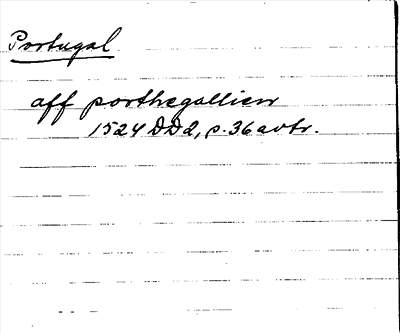 Portugal
aff porthegallien
1524 DD2, p. 36 avtr.